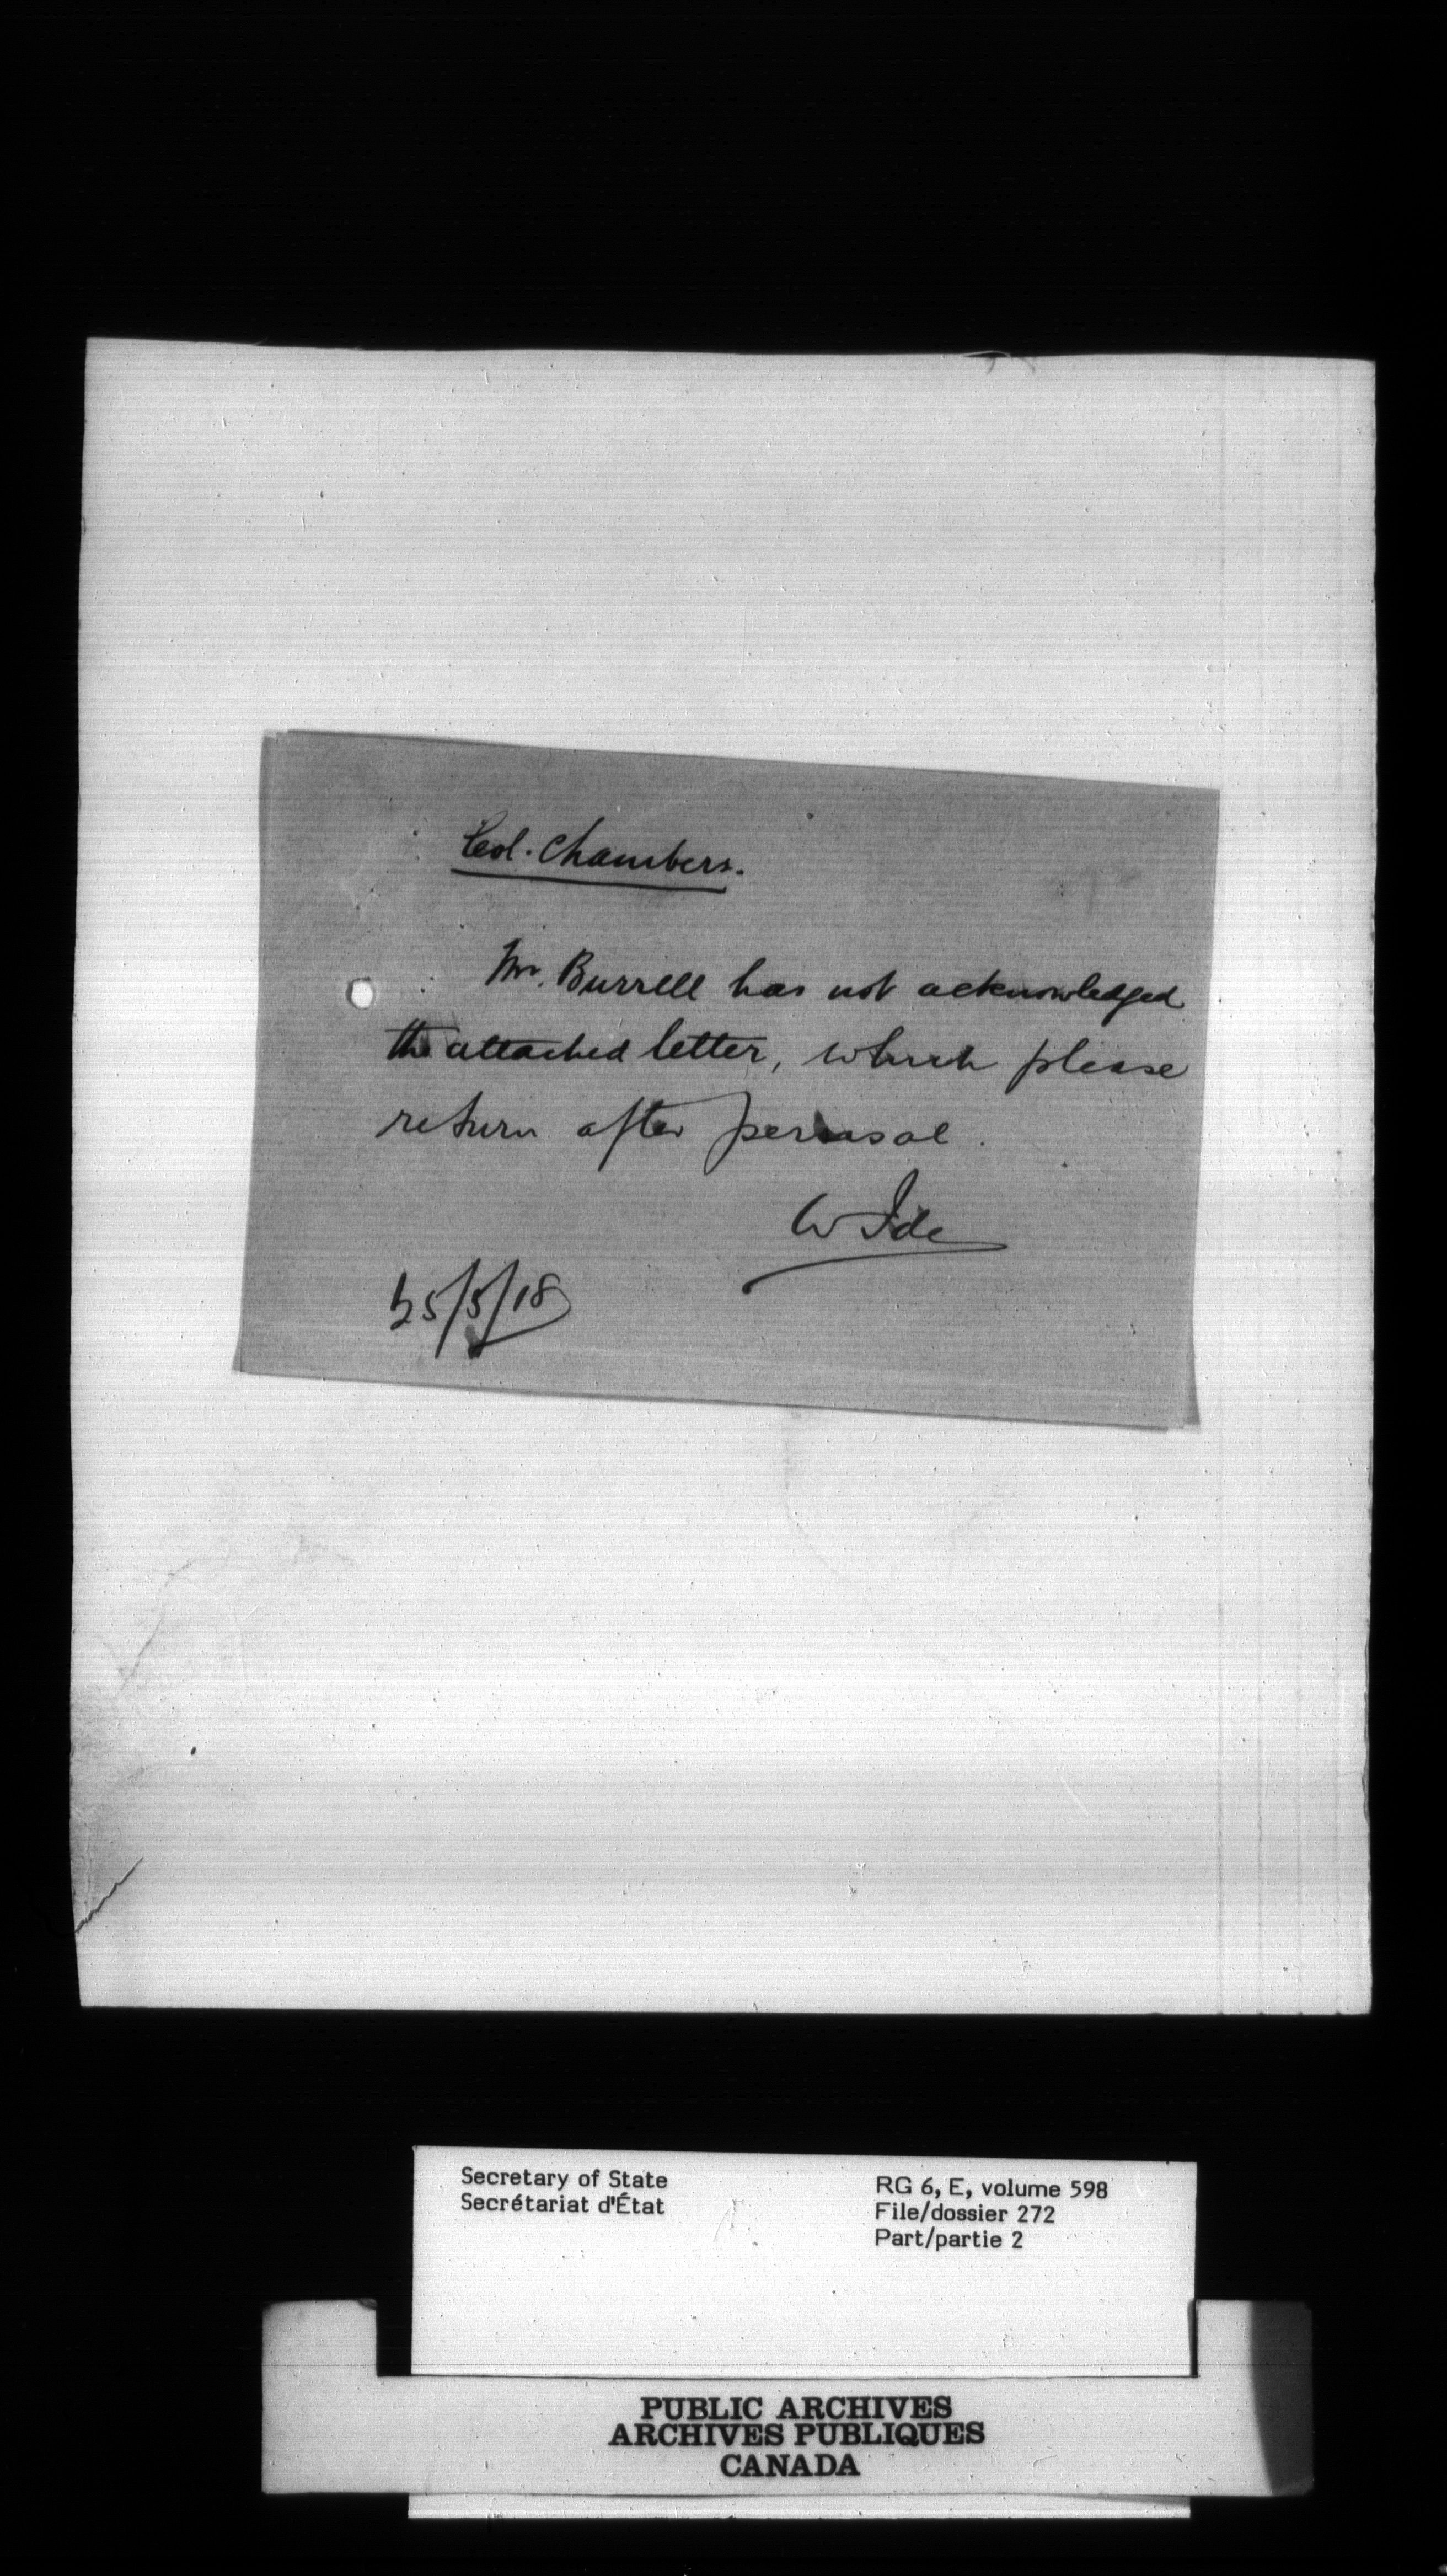 Col. Chambers.
Mr. Burrell has not acknowledged
the attached letter, which please
return after perusal.
W Ide
25/5/18
Secretary of State
Secrétariat d'État
RG 6, E, volume 598
File/dossier 272
Part/partie 2
PUBLIC ARCHIVES
ARCHIVES PUBLIQUES
CANADA